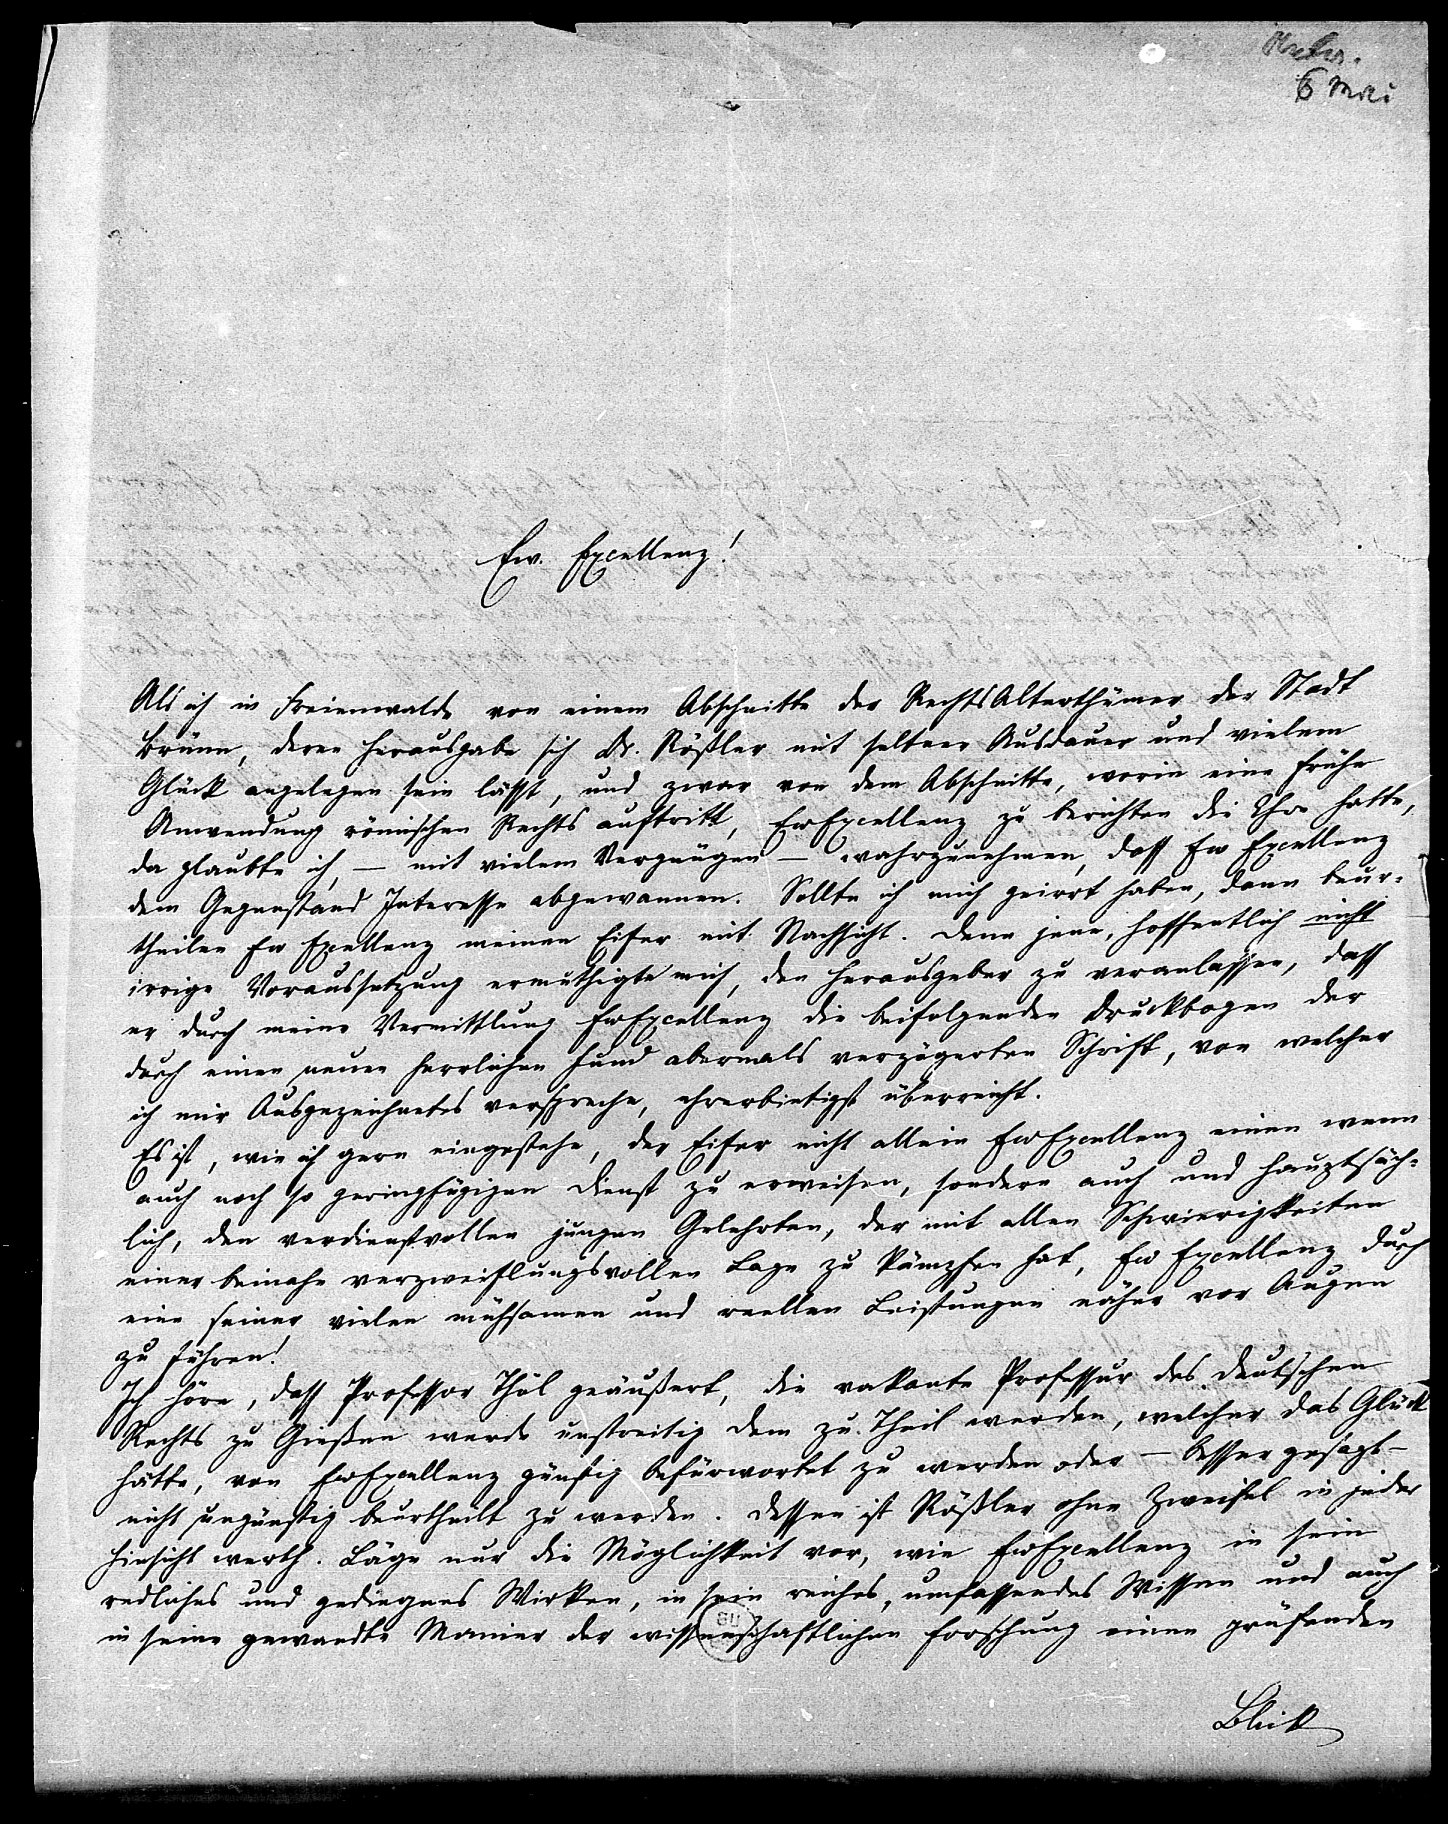 6 Mai
Ew. Excellenz!
Als ich in Freienwalde von einem Abschnitte der RechtsAlterthümer der Stadt
Brünn, deren Herausgabe sich Dr. Rößler mit seltner Ausdauer und vielem
Glück angelegen sein lässt, und zwar von dem Abschnitte, worin eine frühe
Anwendung römischen Rechts auftritt, EwExcellenz zu berichten die Ehre hatte,
da glaubte ich, – mit vielem Vergnügen – wahrzunehmen, dass Ew Excellenz
dem Gegenstand Interesse abgewannen. Sollte ich mich geirrt haben, dann beur-
theilen Ew Excellenz meinen Eifer mit Nachsicht. Denn jene, hoffentlich nicht
irrige Voraussetzung ermuthigte mich, den Herausgeber zu veranlassen, dass
er durch meine Vermittlung EwExcellenz die beifolgenden Druckbogen der
durch einen neuen herrlichen Fund abermals verzögerten Schrift, von welcher
ich mir Ausgezeichnetes verspreche, ehrerbietigst überreicht.
Es ist, wie ich gern eingestehe, der Eifer nicht allein EwExcellenz einen wenn
auch noch so geringfügigen Dienst zu erweisen, sondern auch und hauptsäch-
lich, den verdienstvollen jungen Gelehrten, der mit allen Schwierigkeiten
einer beinahe verzweiflungsvollen Lage zu kämpfen hat, Ew Excellenz durch
eine seiner vielen mühsamen und reellen Leistungen näher vor Augen
zu führen!
Ich höre, dass Professor Thöl geäußert, die vakante Professur des deutschen
Rechts zu Gießen werde unstreitig dem zu Theil werden, welcher das Glück
hätte, von EwExcellenz günstig befürwortet zu werden oder – besser gesagt –
nicht ungünstig beurtheilt zu werden. Dessen ist Rößler ohne Zweifel in jeder
Hinsicht werth. Läge nur die Möglichkeit vor, wie EwExcellenz in sein
redliches und gediegnes Wirken, in sein reiches, umfassendes Wissen und auch
in seine gewandte Manier der wissenschaftlichen Forschung einen prüfenden
Blick